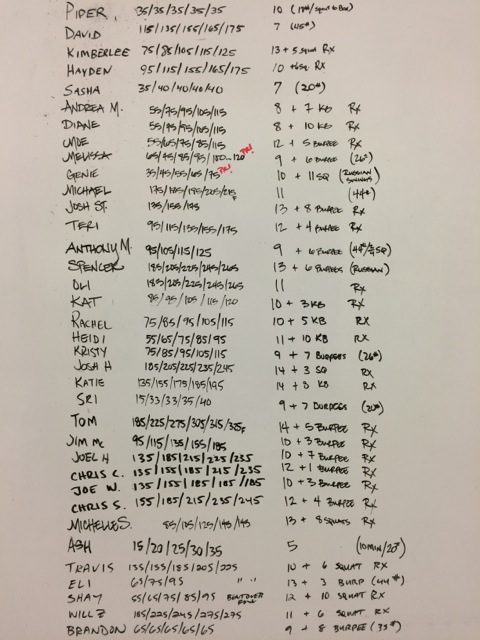 PIPER, 35/35/35/35/35 10 (18#/squat to Box)
DAVID 115/135/155/165/175 7 (45#)
KIMBERLEE 75/85/105/115/125 13 + 5 squat Rx
HAYDEN 95/115/155/165/175 10 + 6 SQ. Rx
SASHA 35/40/40/40/40 7 (20#)
ANDREA M. 55/75/95/105/115 8 + 7 KB Rx
DIANE 55/75/95/105/115 8 + 10 KB Rx
55/65/75/85/115 12 + 5 BURPEE Rx
MELISSA 65/75/85/95/100...120 PR! 9 + 6 BURPEE (26#)
GENIE 35/45/55/65/75 PR! 10 + 11 SQ (RUSSIAN SWINGS)
MICHAEL 175/185/195/205/215F 11 (44#)
JOSH ST. 135/155/175 13 + 8 BURPEE Rx
TERI 95/115/135/155/175 12 + 4 BURPEE Rx
ANTHONY M. 95/105/115/125 9 + 6 BURPEE (44#/3/4 SQ)
SPENCER 185/205/225/245/265 13 + 6 BURPEES (RUSSIAN)
OLI 185/205/225/245/265 11 Rx
KAT 85/95/105/115/120 10 + 3 KB Rx
RACHEL 75/85/95/105/115 10 + 5 KB Rx
HEIDI 55/65/75/85/95 11 + 10 KB Rx
KRISTY 75/85/95/105/115 9 + 7 BURPEES (26#)
JOSH H 185/205/225/235/245 14 + 3 SQ Rx
KATIE 135/155/175/185/195 14 + 8 KB Rx
SRI 15/33/33/35/40 9 + 7 BURPEES (20#)
TOM 185/225/275/305/315/325F 14 + 5 BURPEE Rx
JIM MC 95/115/135/155/185 10 + 3 BURPEE Rx
JOEL H 135/185/215/225/235 10 + 7 BURPEE Rx
CHRIS C. 135/155/185/215/235 12 + 1 BURPEE Rx
JOE W. 135/155/185/185/185 10 + 3 BURPEE Rx
CHRIS S. 155/185/215/235/245 12 + 4 BURPEE Rx
MICHELLE S. 85/105/125/145/145 13 + 8 SQUATS Rx
ASH 15/20/25/30/35 5 (10MIN/20#)
TRAVIS 135/155/185/205/225 10 + 6 SQUAT Rx
ELI 65/75/95 " " 13 + 3 BURP (44#)
SHAY 55/65/75/85/95 BENTOVER ROW 12 + 10 SQUAT Rx
WILL Z 185/225/245/275/275 11 + 6 SQUAT Rx
BRANDON 65/65/65/65/65 9 + 8 BURPEE (35#)